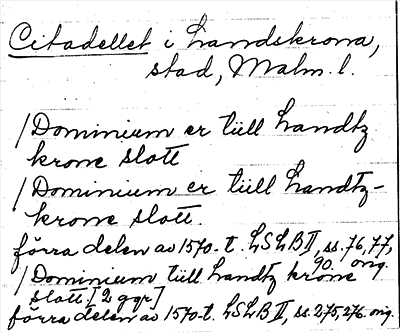 Citadellet i Landskrona,
stad, Malm. l.
/Dominium er tüll Landtz
krone slott
/Dominium er tüll Landtz-
krone slott.
förra delen av 1570-t. LSLB II, ss. 76, 77,
90. orig.
/Dominium tüll Landtz krone
slott [2 ggr]
förra delen av 1570-t. LSLB II, ss. 275, 276. orig.